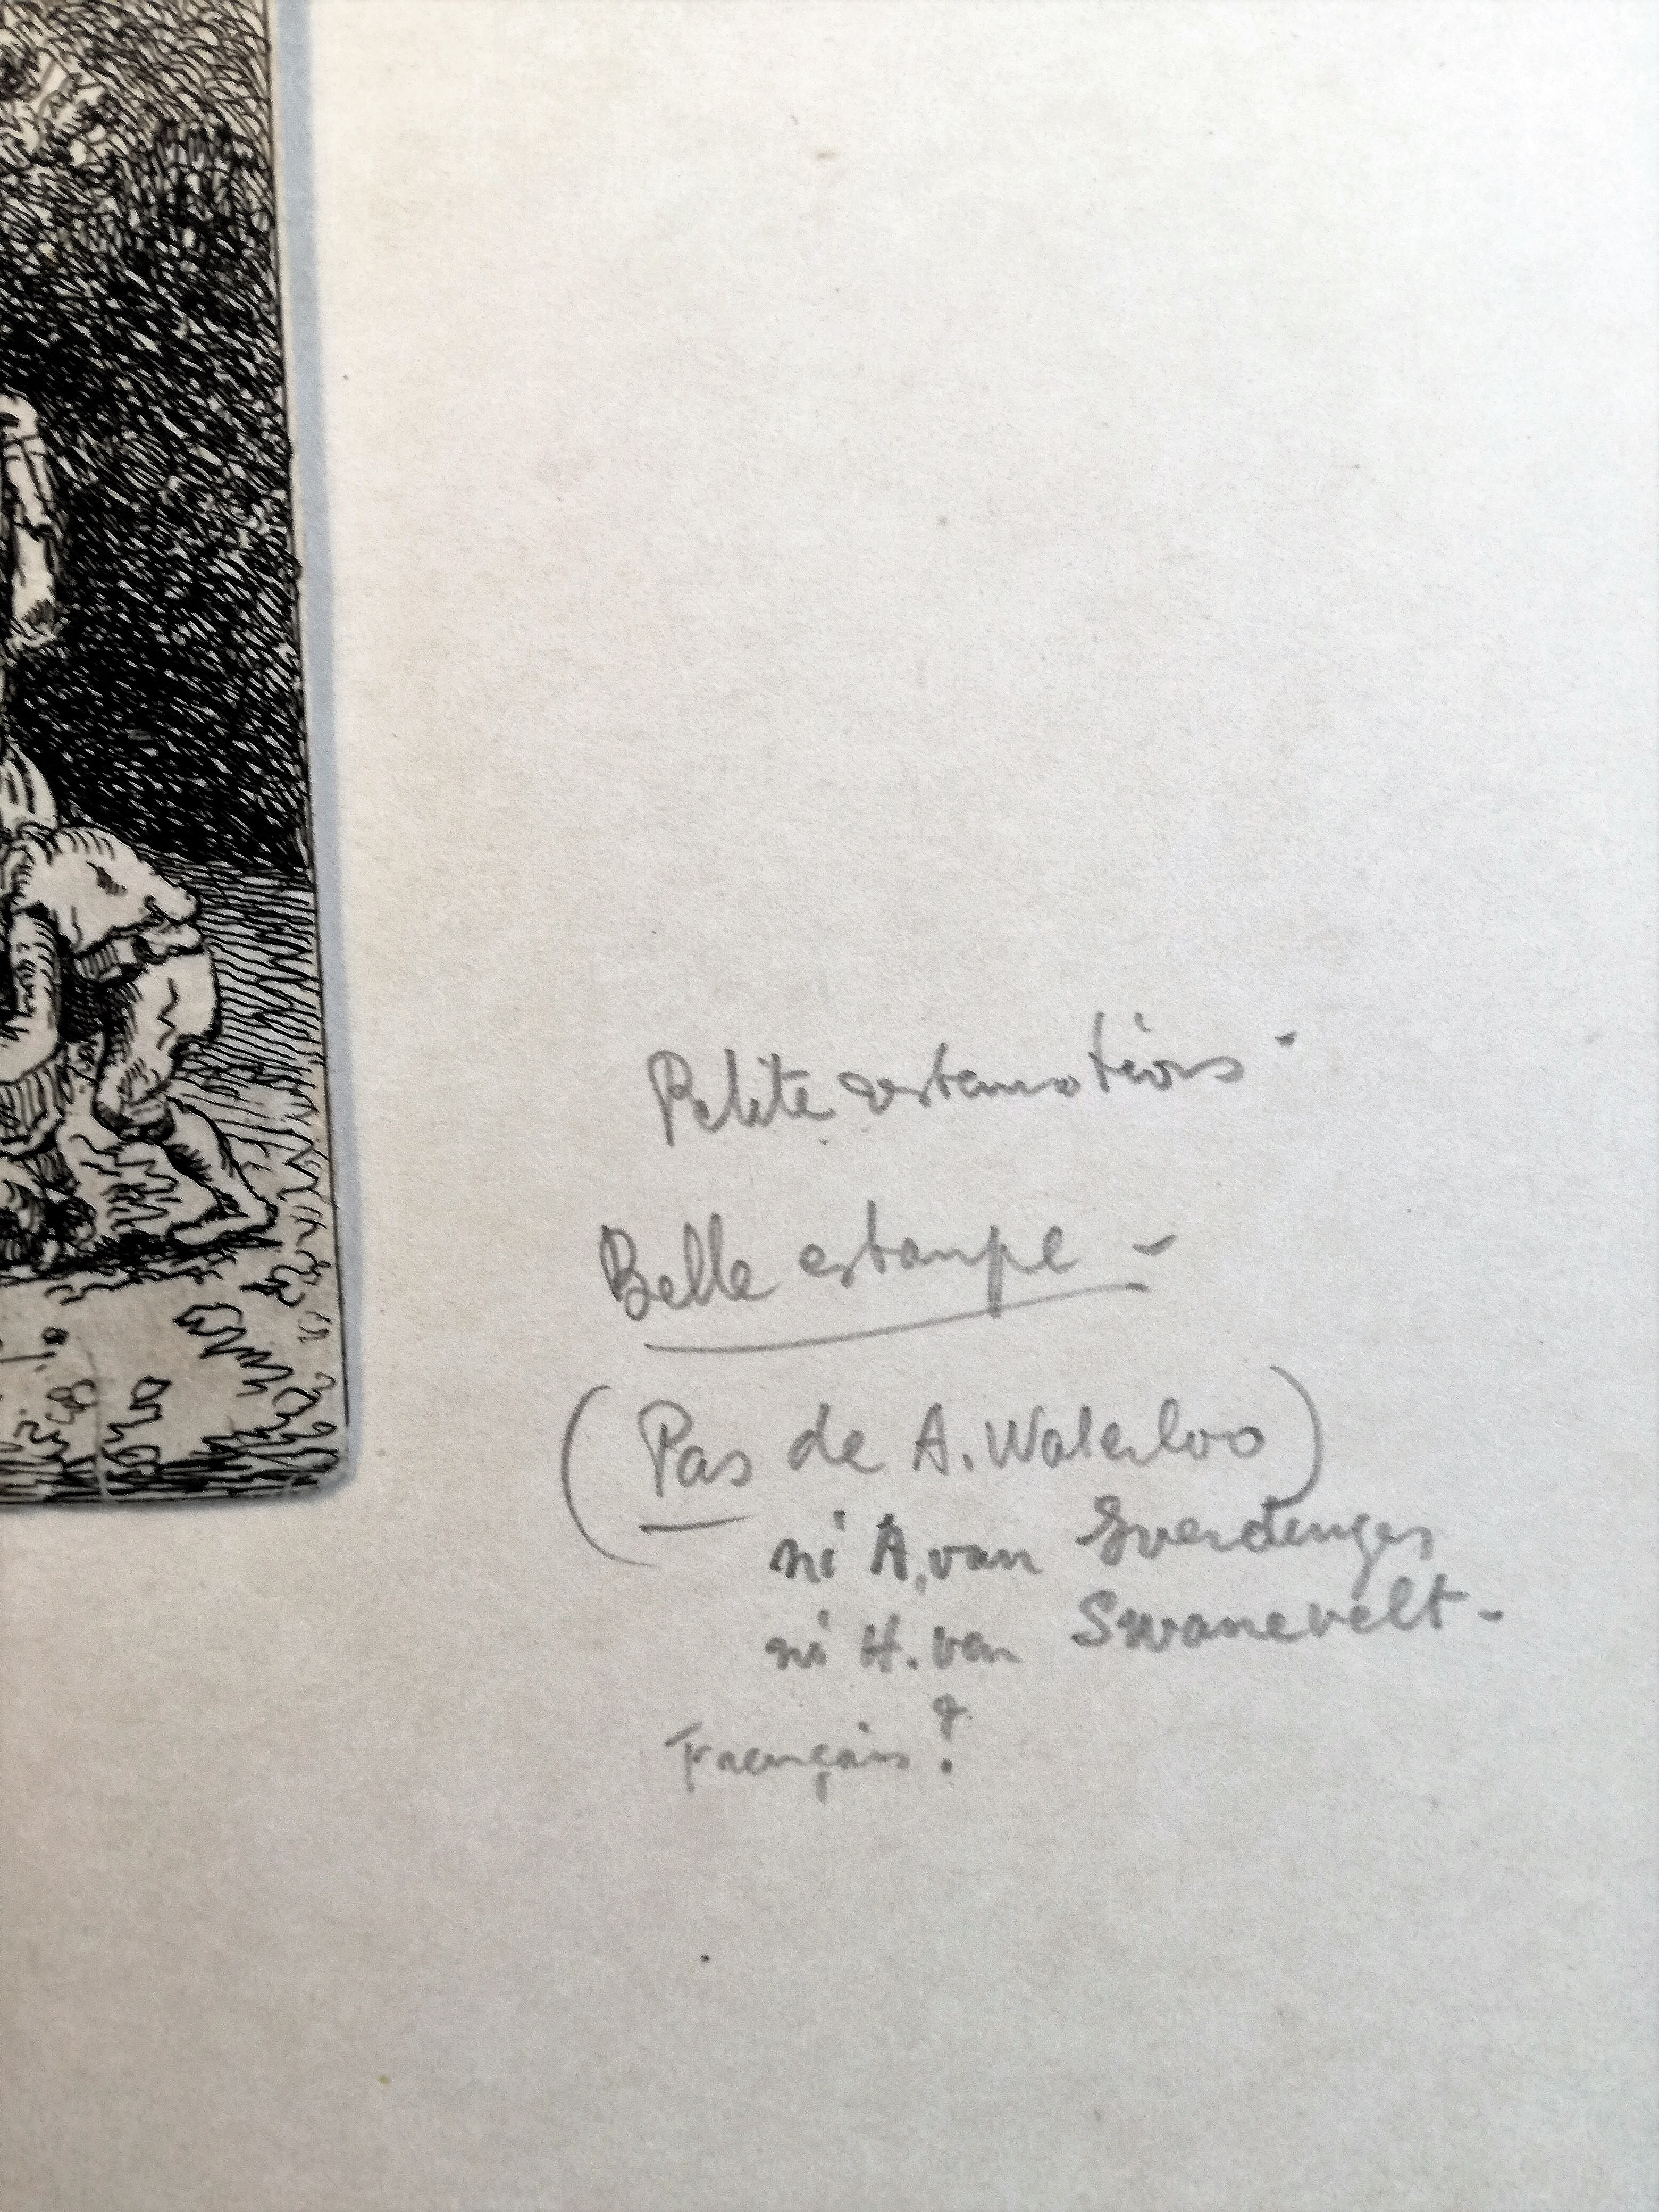 Petite
Belle estampe -
(Pas de A. Waterloo)
ni A. van Everdingen
ni H. van Swanevelt -
Français ?